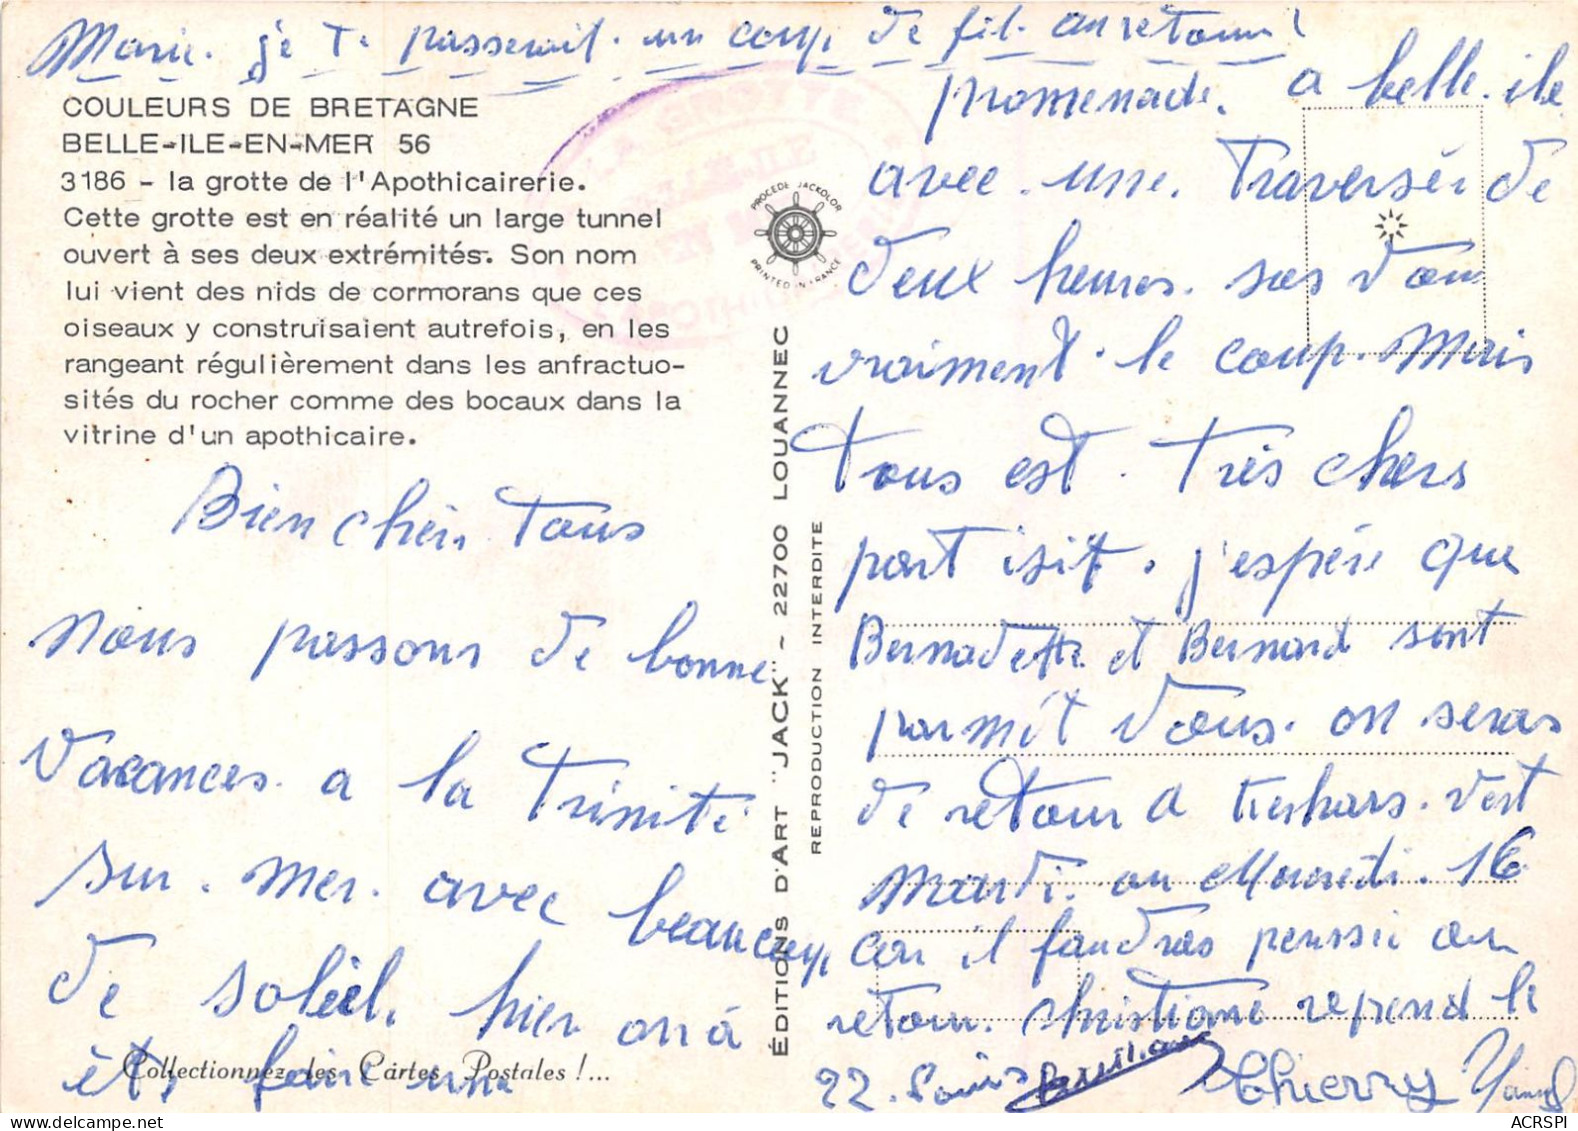 Marie. je Te passerait. un coup, de fil. au retour!
COULEURS DE BRETAGNE
BELLE-ILE-EN-MER 56
3186 - la grotte de l'Apothicairerie.
Cette grotte est en réalité un large tunnel
ouvert à ses deux extrémités. Son nom
lui vient des nids de cormorans que ces
oiseaux y construisaient autrefois, en les
rangeant régulièrement dans les anfractuo-
sités du rocher comme des bocaux dans la
vitrine d'un apothicaire.
Bien chér. Tous
nous passons de bonne
Vacances. a la Trinité
sur. mer. avec beaucoup,
de soleil. hier on á
èté faire une
Collectionnez les Cartes Postales !...
PROCEDE JACKOLOR
PRINTED IN FRANCE
ÉDITIONS D'ART "JACK" - 22700 LOUANNEC
REPRODUCTION INTERDITE
promenade. a belle. ile
avec. une. Traversér de
deux heures. sas vau
vraiment. le coup. Mais
Tous est. Très chers
part isit. j'espére que
Bernadette et Bernard sont
parmit Vous. on seras
de retour a vest
Mardi. ou Mercredi. 16
car il faudras pensér au
retour. christiane reprend le
22. Louis Thierry Yann
ACRSPI